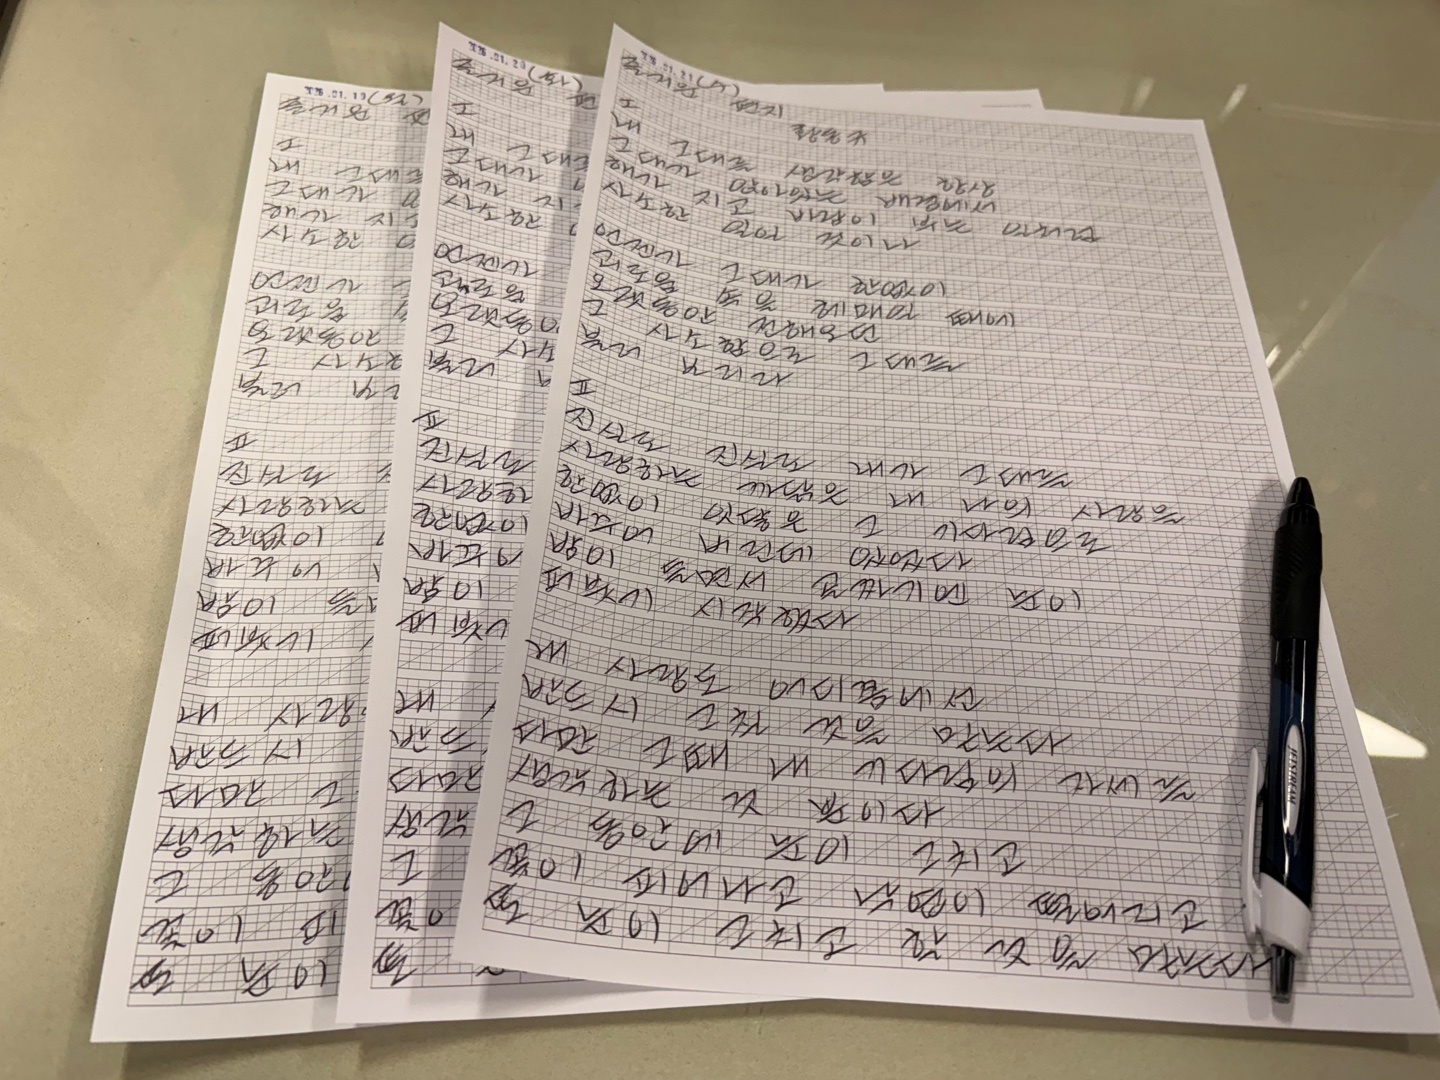 .01.19(월)
즐거운 편
I
내 그대를
그대가
해가 지
사소한
언젠가
괴로움
오랫동안
그 사소
불러 보
II
진실로
사랑하는
한없이
바꾸어
밤이 들
퍼붓기
내 사랑
반드시
다만 그
생각하는
그 동안
꽃이 피
또 눈이
.01.20(화)
즐거운 편
I
내 그대
그대가
해가 지
사소한
언젠가
괴로움
오랫동안
그 사소
불러
II
진실로
사랑하
한없이
바꾸어
밤이
퍼붓기
내
반드시
다만
생각
그
꽃이
또
.01.21(수)
즐거운 편지
황동규
I
내 그대를 생각함은 항상
그대가 앉아있는 배경에서
해가 지고 바람이 부는 일처럼
사소한 일일 것이나
언젠가 그대가 한없이
괴로움 속을 헤매일 때에
오랫동안 전해오던
그 사소함으로 그대를
불러 보리라
II
진실로 진실로 내가 그대를
사랑하는 까닭은 내 나의 사랑을
한없이 잇닿은 그 기다림으로
바꾸어 버린데 있었다
밤이 들면서 골짜기엔 눈이
퍼붓기 시작했다
내 사랑도 어디쯤에선
반드시 그칠 것을 믿는다
다만 그때 내 기다림의 자세를
생각하는 것 뿐이다
그 동안에 눈이 그치고
꽃이 피어나고 낙엽이 떨어지고
또 눈이 그치고 할 것을 믿는다
JETSTREAM